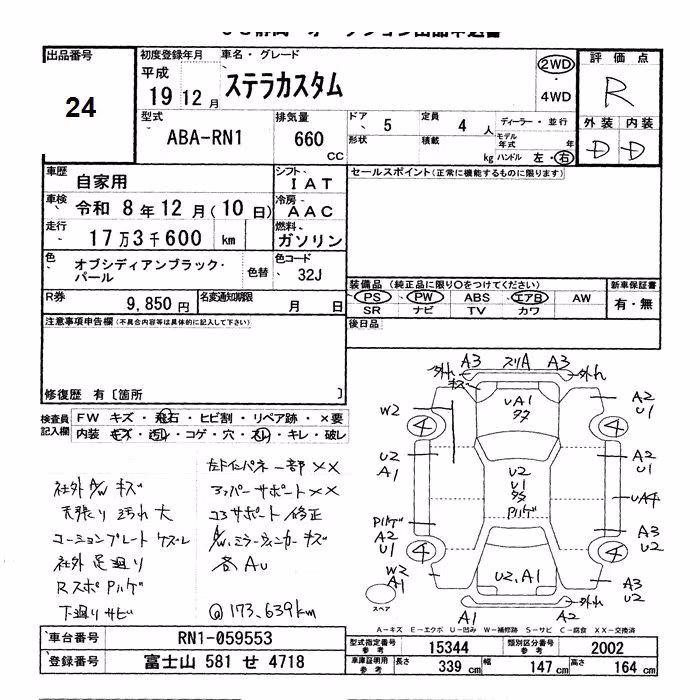 出品番号
24
初度登録年月
平成
19 12 月
車名・グレード
ステラカスタム
2WD
4WD
評価点
R
外装 内装
D D
型式
ABA-RN1
排気量
660
CC
ドア
5
形状
定員
4 人
積載
kg
ディーラー・並行
モデル年式 年
ハンドル 左・右
車歴
自家用
シフト
IAT
車検
令和 8年12月(10日)
冷房
AAC
走行
17万3千600 km
燃料
ガソリン
色
オブシディアンブラック・
パール
色替
色コード
32J
R券
9,850 円
名変通知期限
月 日
セールスポイント(正常に機能するものに限ります)
装備品 (純正品に限り○をつけてください)
PS PW ABS エアB AW
SR ナビ TV カワ
新車保証書
有・無
後日品
注意事項申告欄(不具合内容等は具体的に記入して下さい)
修復歴 有〔箇所 〕
検査員
記入欄
FW キズ・飛石・ヒビ割・リペア跡・×要
内装 キズ・汚レ・コゲ・穴・スレ・キレ・破レ
社外A/Wキズ
天張り汚れ大
コーションプレートケズレ
社外足廻り
RスポPハゲ
下廻りサビ
左Fインパネ一部××
アッパーサポート××
コアサポート修正
A/W、ミラーウィンカーキズ
各AU
@173,639km
A3 スリA A3
外れ 外れ
キズ
UA1
W2
A2
U1
4 4
U2
A1
A2
U1
U2
U1
Pハゲ
UA4
Pハゲ
A2
U1
A3
U2
4 4
W2
A1
U2,A1
A3
U2
外れ
A1 A2
スペア
A-キズ E-エクボ U-凹み W-補修跡 S-サビ C-腐食 XX-交換済
車台番号
RN1-059553
登録番号
富士山 581 せ 4718
型式指定番号
参考
15344
類別区分番号
参考
2002
車庫証明用
参考
長さ 339 cm
幅 147 cm
高さ 164 cm